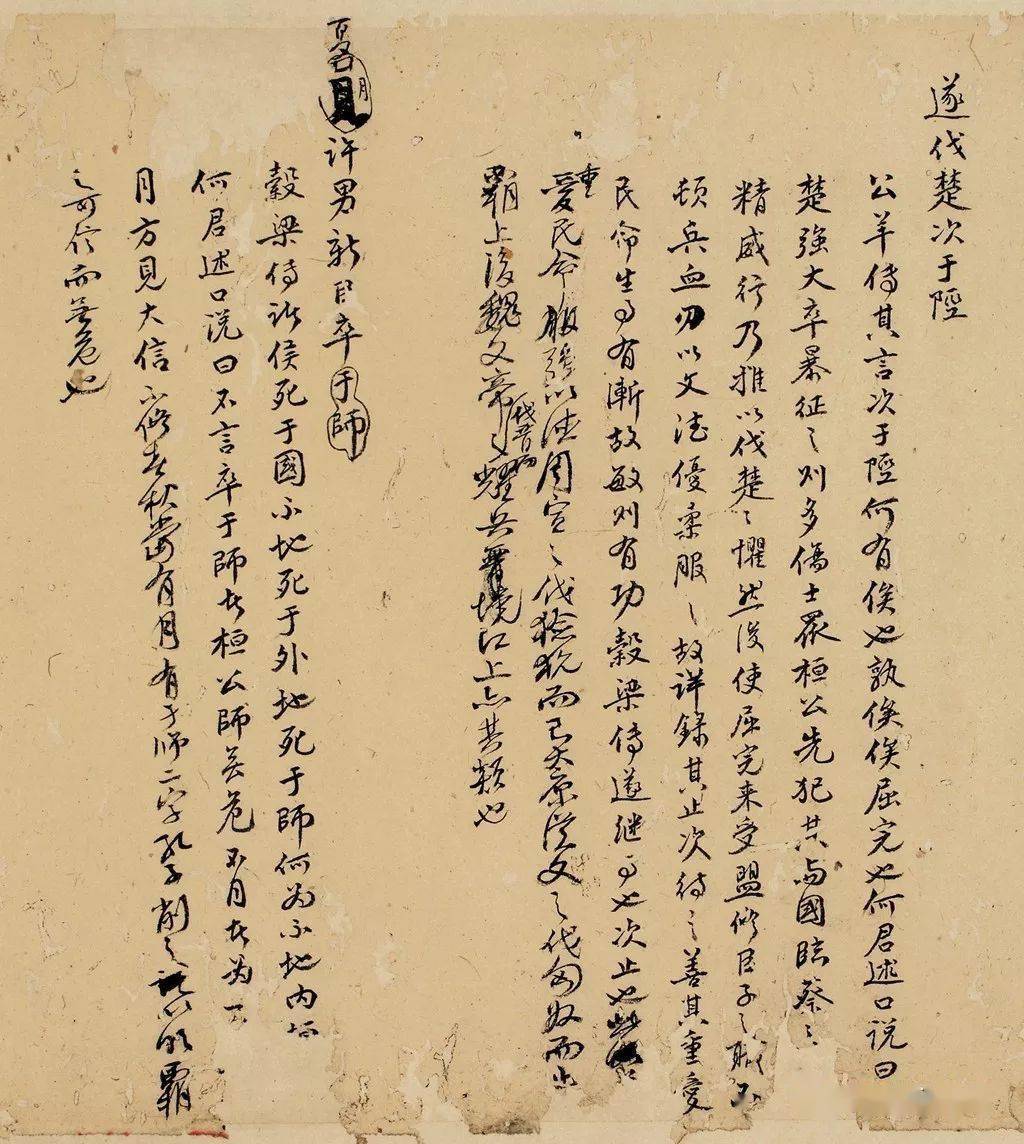 遂伐楚次于陘
公羊傳其言次于陘何有俟也孰俟俟屈完也何君述口说曰
楚强大卒暴征之则多傷士眾桓公先犯其与國臨蔡〻
精威行乃推以伐楚〻懼然後使屈完来受盟修臣子之職不
頓兵血刃以文德優柔服之故詳錄其止次待之善其重愛
民命生事有漸故敏则有功穀梁傳遂继事也次止也
重愛民命服強以德周宣之伐玁狁而已太原漢文之伐匈奴而止
霸上後魏文帝伐晋而耀兵境江上亦其類也
月許男新臣卒于師
穀梁傳诸侯死于國不地死于外地死于師何为不地内桓
何君述口说曰不言卒于師者桓公師无危不月者为下
月方見大信不修春秋當有月有于师二字孔子削之以明霸
之可信而无危也